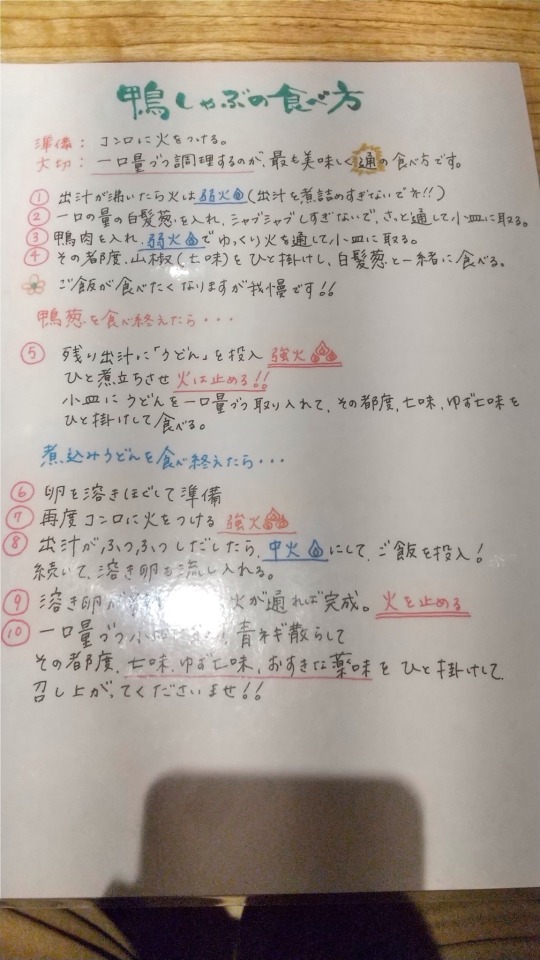 鴨しゃぶの食べ方
準備: コンロに火をつける。
大切: 一口量づつ調理するのが、最も美味しく通の食べ方です。
① 出汁が沸いたら火は弱火(出汁を煮詰めすぎないでネ!!)
② 一口の量の白髪葱を入れ、シャブシャブしすぎないで、さっと通して小皿に取る。
③ 鴨肉を入れ、弱火でゆっくり火を通して小皿に取る。
④ その都度、山椒(七味)をひと掛けし、白髪葱と一緒に食べる。
ご飯が食べたくなりますが我慢です!!
鴨葱を食べ終えたら・・・
⑤ 残り出汁に「うどん」を投入 強火
ひと煮立ちさせ 火は止める!!
小皿にうどんを一口量づつ取り入れて、その都度、七味、ゆず七味を
ひと掛けして食べる。
煮込みうどんを食べ終えたら・・・
⑥ 卵を溶きほぐして準備
⑦ 再度コンロに火をつける 強火
⑧ 出汁がふつふつしだしたら、中火にして、ご飯を投入!
続いて、溶き卵を流し入れる。
⑨ 溶き卵 火が通れば完成。 火を止める
⑩ 一口量づつ小皿 青ネギ散らして
その都度、七味、ゆず七味、おすきな薬味をひと掛けして、
召し上がってくださいませ!!